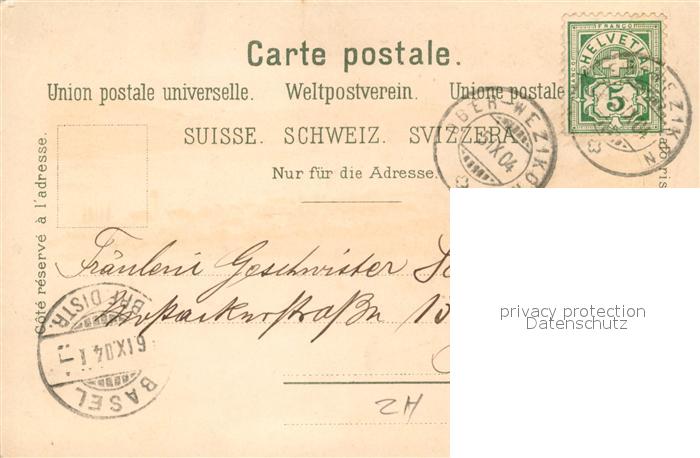 Carte postale.
Union postale universelle. Weltpostverein. Unione postale
SUISSE. SCHWEIZ. SVIZZERA.
Nur für die Adresse.
Côté réservé à l'adresse.
FRANCO
HELVETIA
5
OBER-WEZIKON
6.IX.04
Fräulein Geschwister
straße 15
BRF. DISTR.
6.IX.04
BASEL
ZH
privacy protection
Datenschutz